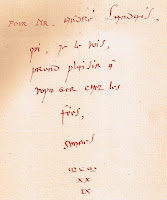 Pour Mr. André Lyndais,
qui, je le vois,
prend plaisir à
voyager chez les
fées,